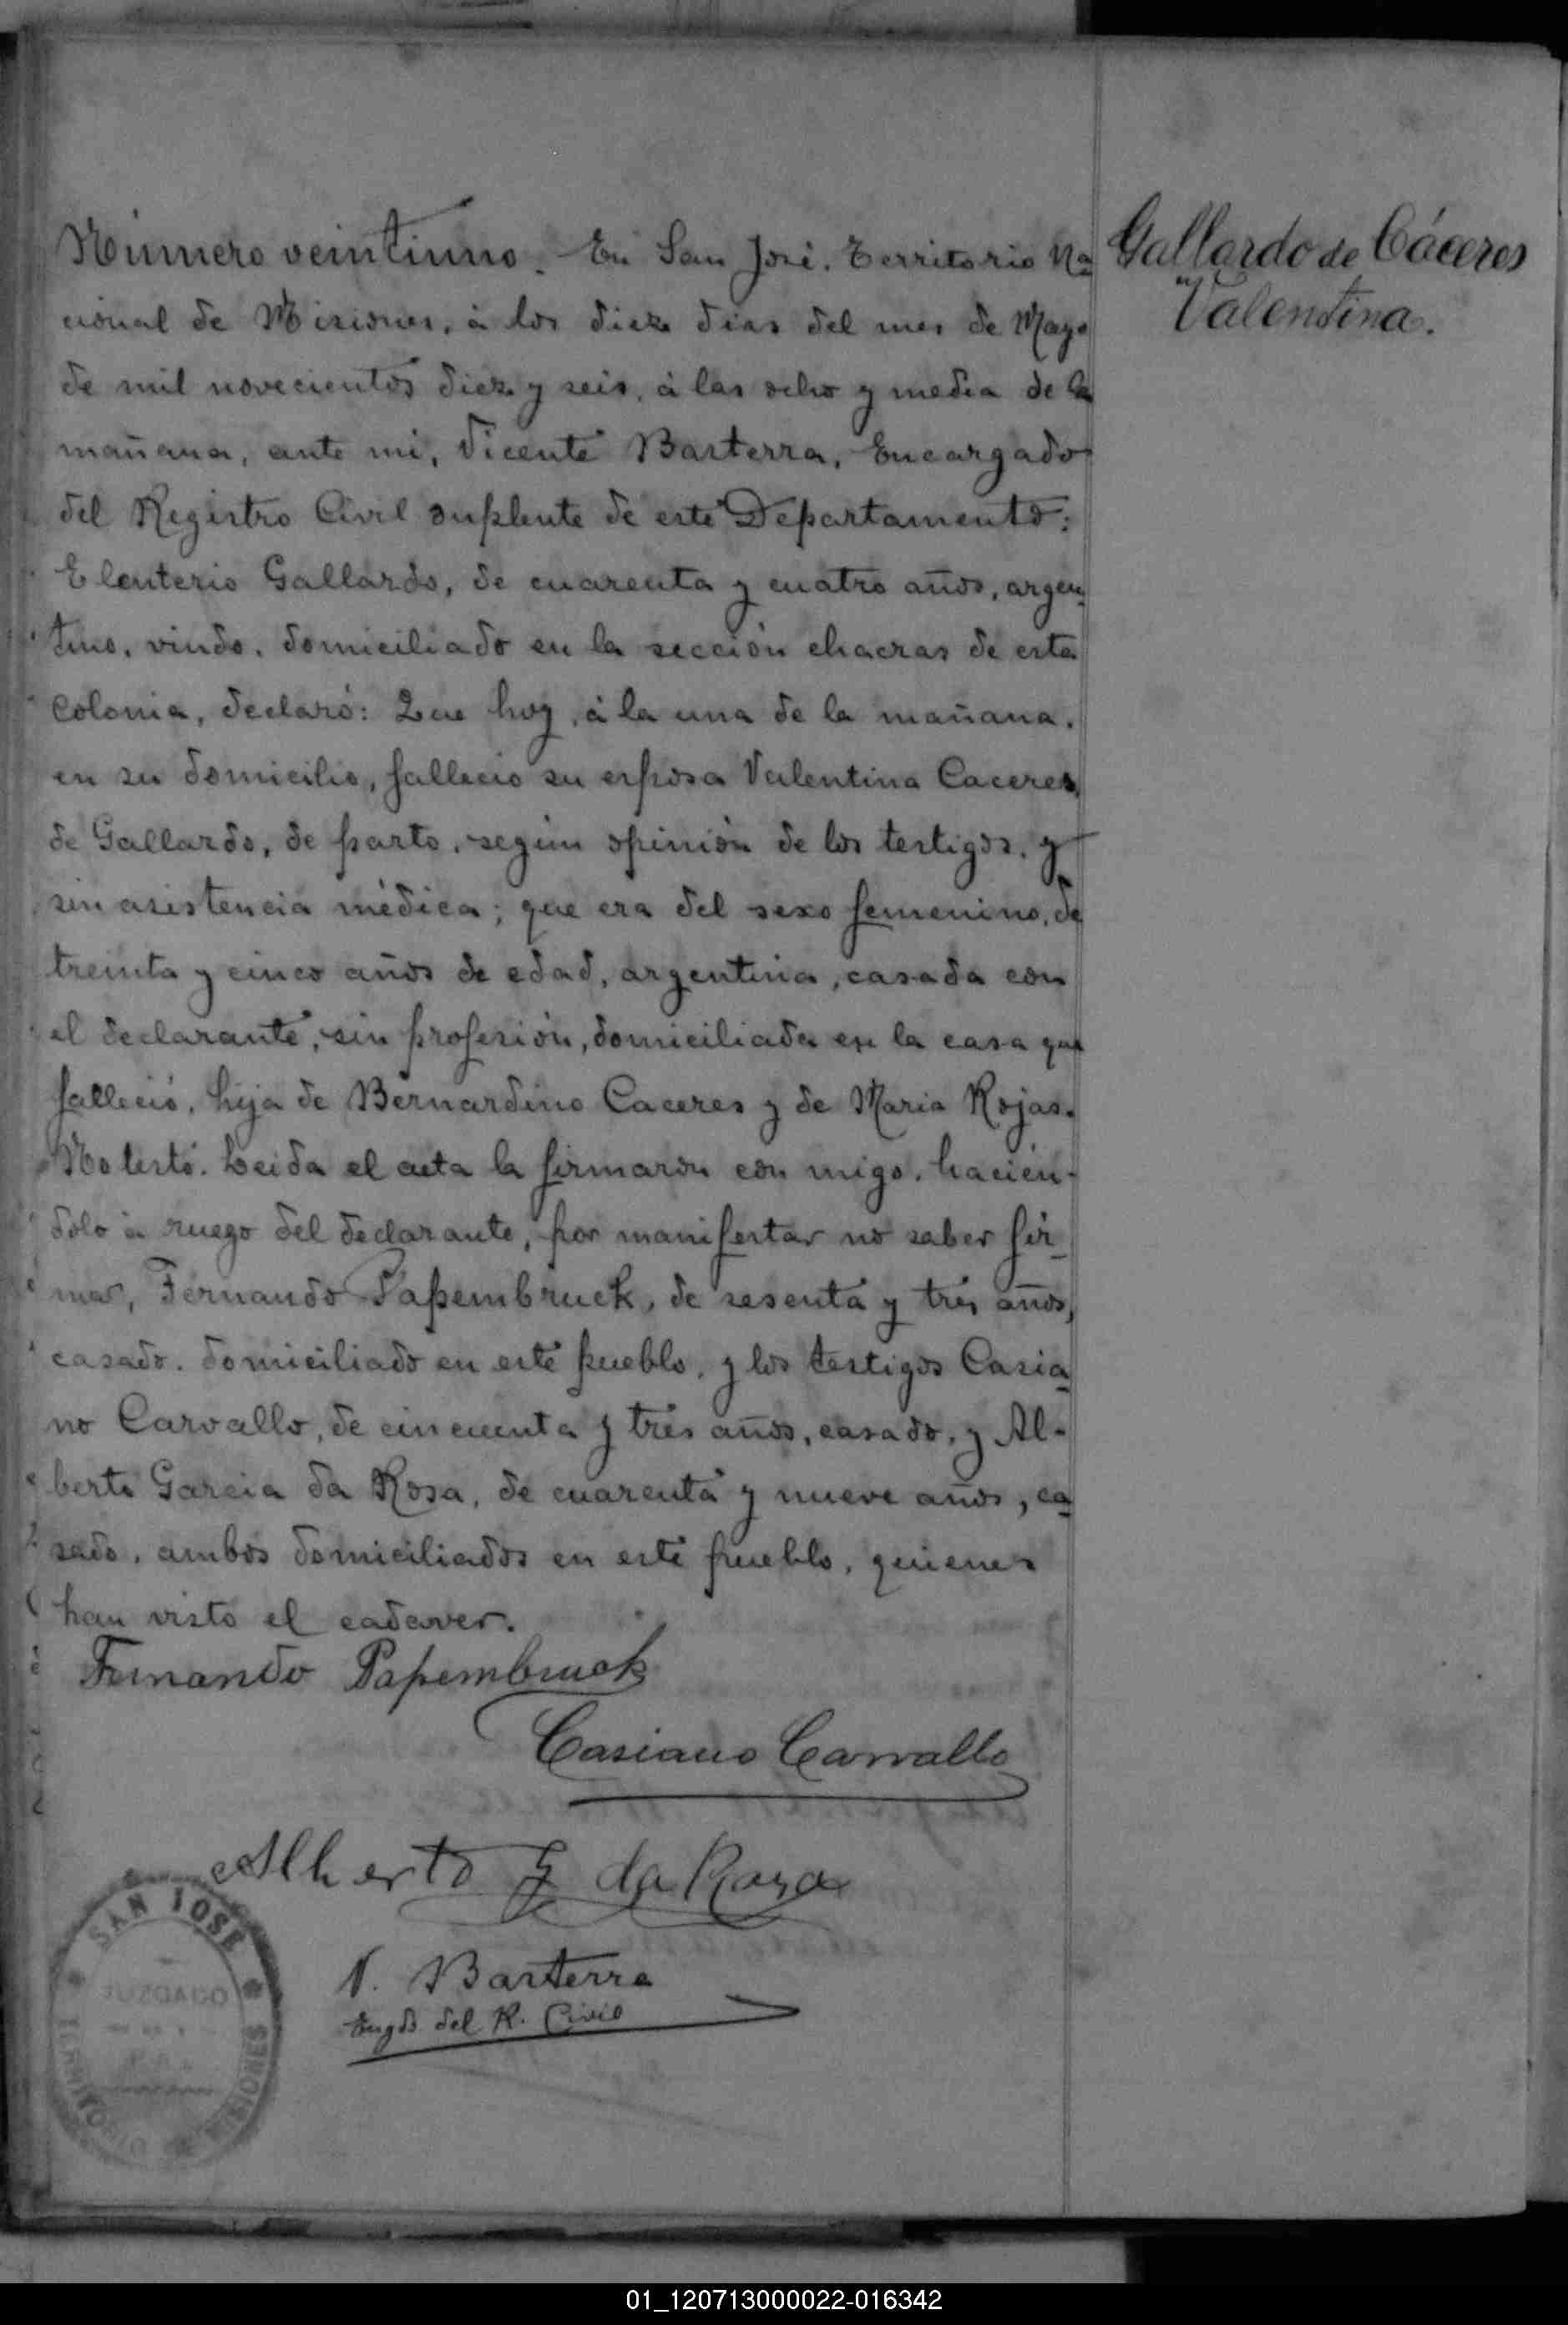 Número veintiuno. En San José, Territorio Na
cional de Misiones, á los diez dias del mes de Mayo
de mil novecientos diez y seis, á las ocho y media de la
mañana, ante mi, Vicente Basterra, Encargado
del Registro Civil suplente de este Departamento:
Eleuterio Gallardo, de cuarenta y cuatro años, argen
tino, viudo, domiciliado en la sección chacras de esta
Colonia, declaró: Que hoy, á la una de la mañana,
en su domicilio, fallecio su esposa Valentina Caceres
de Gallardo, de parto, según opinión de los testigos, y
sin asistencia médica; que era del sexo femenino, de
treinta y cinco años de edad, argentina, casada con
el declarante, sin profesión, domiciliada en la casa que
falleció, hija de Bernardino Caceres y de Maria Rojas.
No testó. Leida el acta la firmaron con migo, hacién-
dolo á ruego del declarante, por manifestar no saber fir
mar, Fernando Papembruck, de sesenta y tres años,
casado, domiciliado en este pueblo, y los testigos Casia
no Carvallo, de cincuenta y tres años, casado, y Al-
berto Garcia da Rosa, de cuarenta y nueve años, ca
sado, ambos domiciliados en este pueblo, quienes
han visto el cadaver.
Fernando Papembruck
Casiano Carvallo
Alberto G da Roza
V. Basterra
Engdo del R. Civil
SAN JOSE
JUZGADO
TERRITORIO MISIONES
Gallardo de Cáceres
Valentina.
01_120713000022-016342